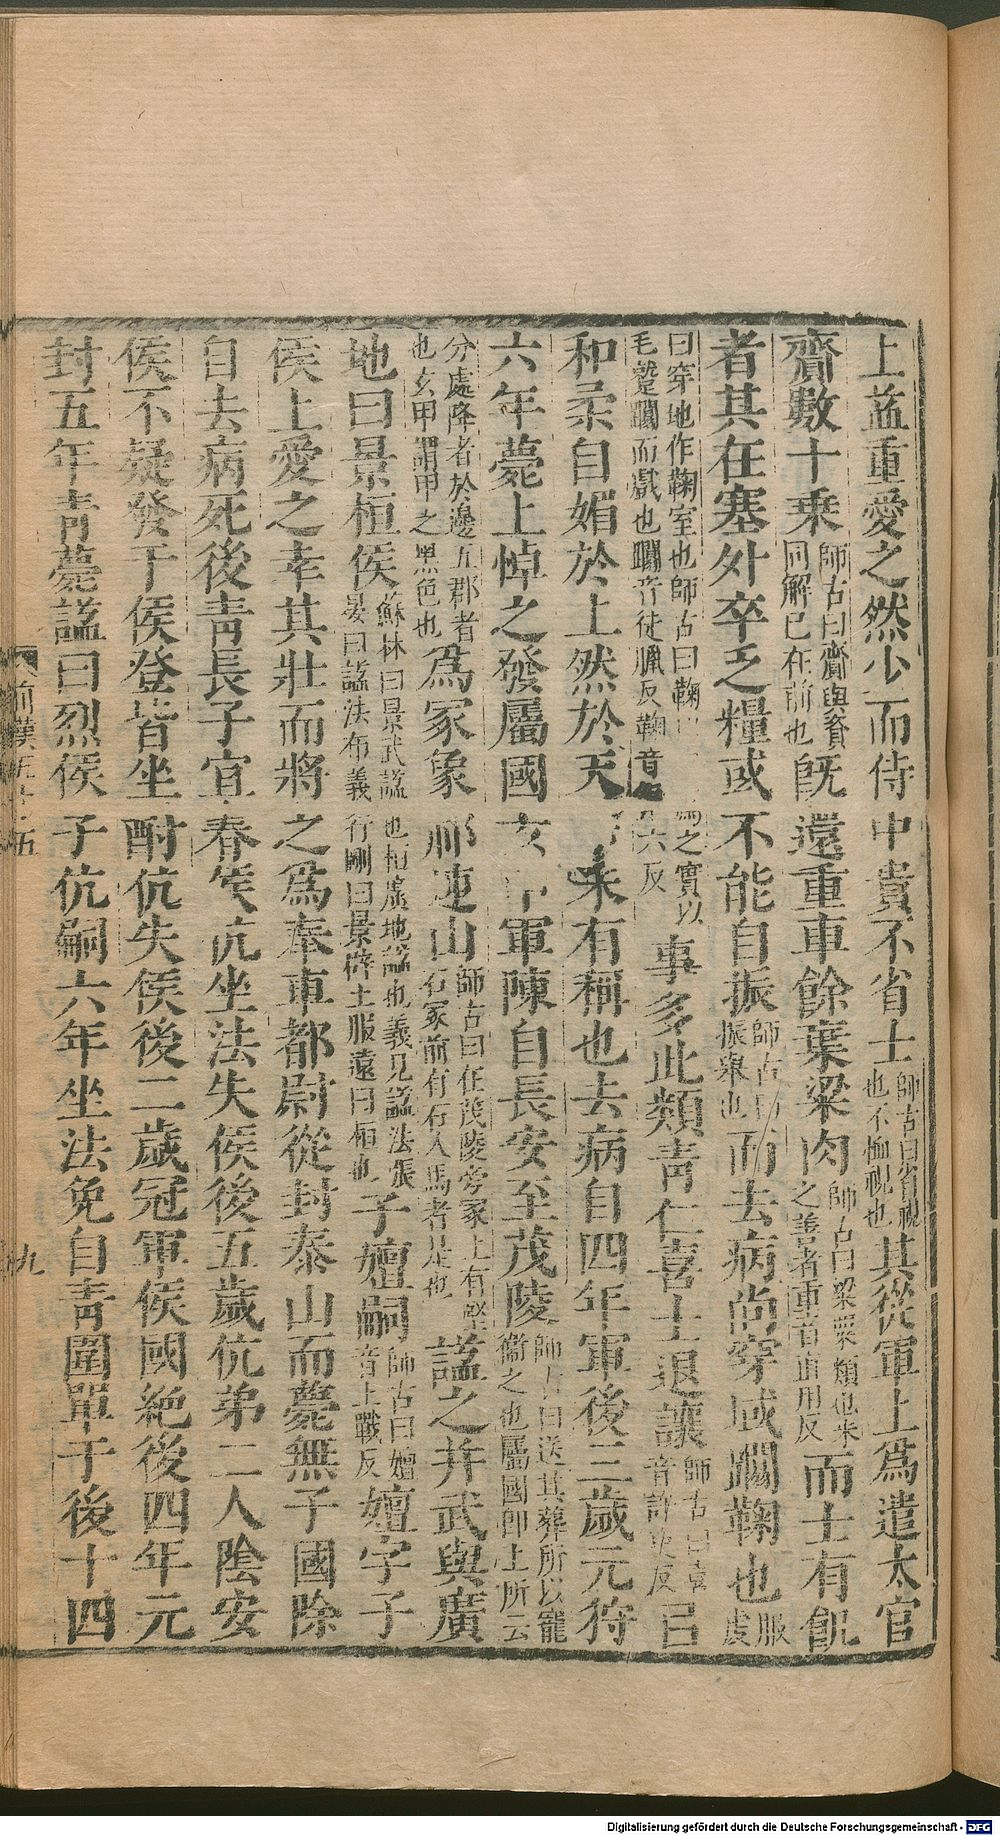 上益重愛之然少而侍中貴不省士師古曰省視也不恤視也其從軍上爲遣太官
齎數十乘師古曰齎與資同解已在前也旣還重車餘棄粱肉師古曰粱粟類也米之善者重音直用反而士有飢
者其在塞外卒乏糧或不能自振師古曰振舉也而去病尚穿域蹋鞠也服虔
曰穿地作鞠室也師古曰鞠以皮爲之實以毛蹵蹋而戲也蹋音徒臘反鞠音六反事多此類靑仁喜士退讓師古曰喜音許吏反㠯
和柔自媚於上然於天未有稱也去病自四年軍後三歲元狩
六年薨上悼之發屬國玄甲軍陳自長安至茂陵師古曰送其葬所以寵衞之也屬國卽上所云
分處降者於邊五郡者也玄甲謂甲之黑色也爲冢象祁連山師古曰在茂陵旁冢上有竪石冢前有石人馬者是也諡之并武與廣
地曰景桓侯蘇林曰景武諡也桓廣地諡也義見諡法張晏曰諡法布義行剛曰景辟土服遠曰桓也子嬗嗣師古曰嬗音上戰反嬗字子
侯上愛之幸其壯而將之爲奉車都尉從封泰山而薨無子國除
自去病死後靑長子宜春侯伉坐法失侯後五歲伉弟二人陰安
侯不疑發干侯登皆坐酎伉失侯後二歲冠軍侯國絶後四年元
封五年靑薨諡曰烈侯子伉嗣六年坐法免自靑圍單于後十四
前漢五十五
九
Digitalisierung gefördert durch die Deutsche Forschungsgemeinschaft - DFG